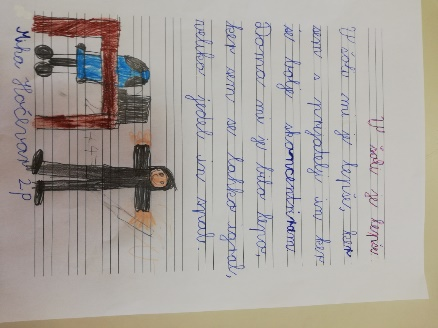 V šoli je lepše
V šoli mi je lepše, ker
sem s prijatelji in ker
se bolje skoncentriram.
Doma mi je bilo lepo,
ker sem se lahko igral,
veliko jedel in spal.
Miha 2.p